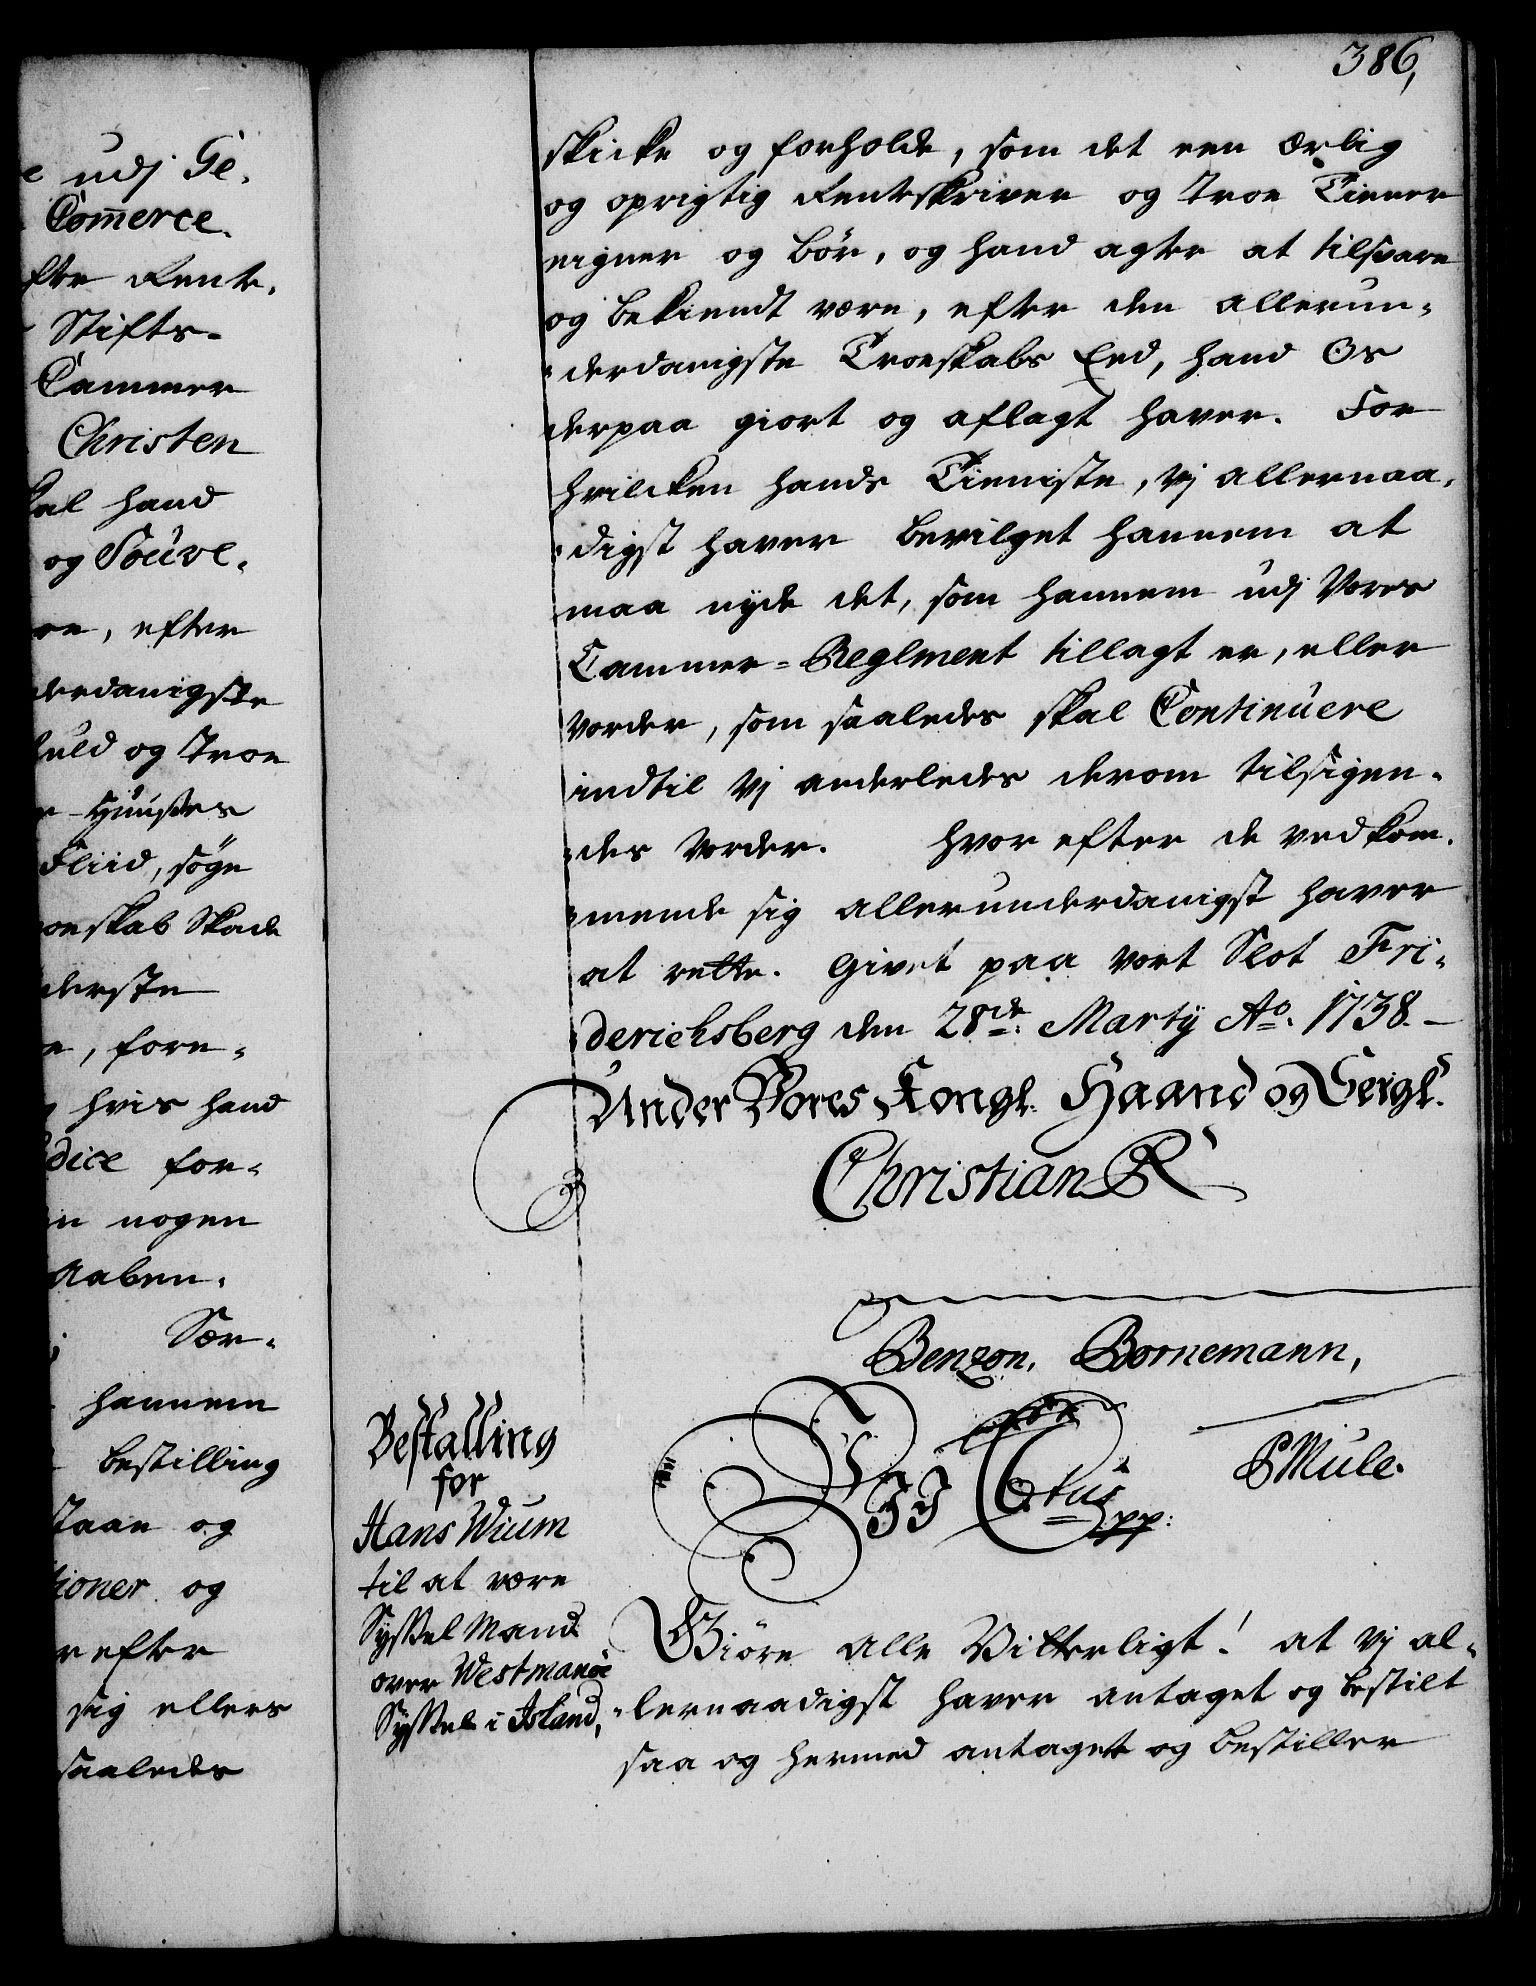 e udj Ge,
Com̄erce.
fte Rente,
Stifts-
Cammer
Christen
kal hand
og Souve,
re, efter
derdanigste
huld og Troe
e-Huusses
Fliid, søge
roeskab Skade
derste
e, fore,
hvis hand
dice for,
en nogen
Aaben,
Sær,
hannem
bestilling
staae og
tioner og
r efter
sig ellers
saaledes
386,
skicke og forholde, som det een Ærlig
og oprigtig Renteskriver og Troe Tiener
eigner og bør, og hand agter at tilsvare
og bekiendt være, efter den allerun,
,derdanigste Troeskabs Eed, hand Os
derpaa giort og aflagt haver. For
hvilcken hands Tieniste, Vj allernaa,
,digst haver bevilget hannem at
maa nyde det, som hannem udj Vores
Cammer=Reglment tillagt er, eller
vorder, som saaledes skal Continuere
indtil Vj anderledes derom tilsigen,
,des vorder. Hvor efter de vedkom,
,mende sig allerunderdanigst haver
at rette. Givet paa vort Slot Fri,
,derichsberg den 28de: Martij Ao. 1738.-
Under Vores Kongl. Haand og Seigl.
Christian R
Benzon. Bornemann,
PMule.
Bestalling
for
Hans Wium
til at være
Syssel Mand
over Westmanøe
Syssel i Island,
VJJ C 6tus pp:
Giøre alle Vitterligt! at Vj al,
,lernaadigst haver antaget og bestilt
saa og hermed antager og bestiller